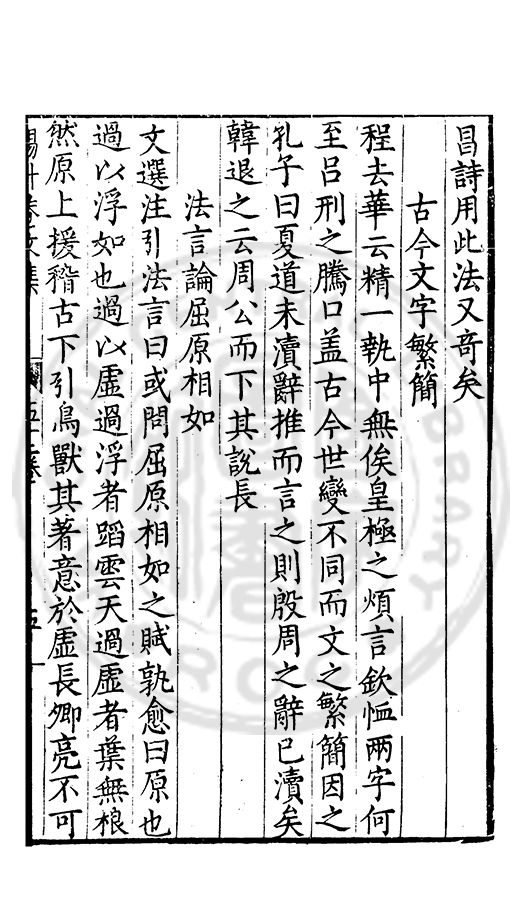 昌詩用此法又奇矣
古今文字繁簡
程去華云精一執中無俟皇極之煩言欽恤兩字何
至吕刑之騰口盖古今世變不同而文之繁簡因之
孔子曰夏道未瀆辭推而言之則殷周之辭已瀆矣
韓退之云周公而下其說長
法言論屈原相如
文選注引法言曰或問屈原相如之賦孰愈曰原也
過以浮如也過以虛過浮者蹈雲天過虛者葉無根
然原上援稽古下引鳥獸其著意於虛長卿亮不可